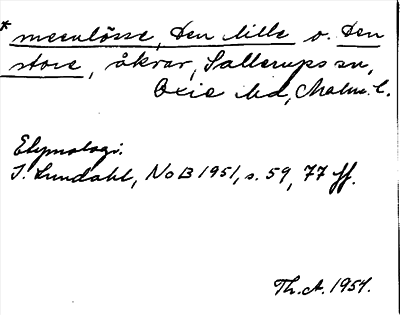 * meenlösse, Den lille o. Den
store, åkrar, Sallerups sn,
Oxie hd, Malm. l.
Etymologi:
I. Lundahl, NoB 1951, s. 59, 77 ff.
Th. A. 1957.